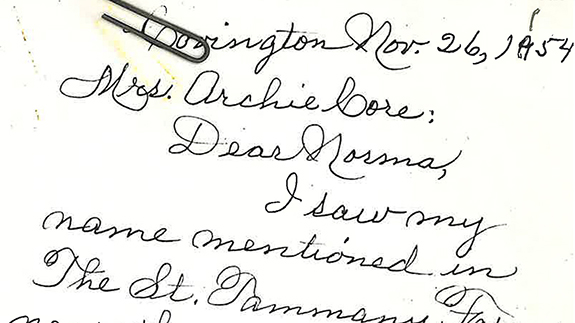 Covington Nov. 26, 1954
Mrs. Archie Core:
Dear Norma,
I saw my
name mentioned in
The St. Tammany